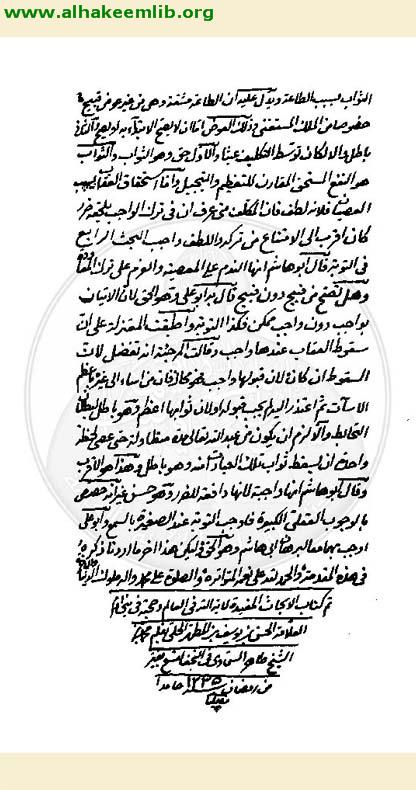 www.alhakeemlib.org
الثواب لسبب الطاعة ويدل عليه ان الطاعة مشقة وهي من غير عوض قبيح
خصوصا من الملك المستغنى وذلك العوض اما ان لا يصح الابتداء به او يصح والثاني
باطل والا لكان توسط التكليف عبثا والاول حق وهو الثواب والثواب
هو النفع المستحق المقارن للتعظيم والتبجيل واما استحقاق العقاب بسبب
العصيان فلانه لطف فان المكلف متى عرف ان في ترك الواجب يلحقه ضرر
كان اقرب الى الامتناع من تركه واللطف واجب البحث الرابع
في التوبة قال ابو هاشم انها الندم على المعصية والعزم على ترك المعاودة
وهل تصح من قبيح دون قبيح قال به ابو على وهو الحق لان الاتيان
بواجب دون واجب ممكن فكذا التوبة واطبقت المعتزلة على ان
سقوط العقاب عندها واجب وقالت المرجئة انه تفضل لان
السقوط ان كان لان قبولها واجب فهو محال فان من اساء الى غيره باعظم
الاساءات ثم اعتذر اليه لم يجب قبوله او لان ثوابها اعظم وهو باطل لبطلان
التحابط والا لزم ان يكون من عبد الله تعالى مدة متطاولة حتى عصى لحظة
واحدة ان يسقط ثواب تلك العبادة منه وهو باطل وهذا هو الاقرب
وقال ابو هاشم انها واجبة لانها دافعة للضرر وهو حسن غير انه خصص
بالوجوب العقلي الكبيرة فاوجب التوبة عند الصغيرة بالسمع وابو على
اوجب بهما معا البرهان ابي هاشم وهو الحق وليكن هذا اخر ما اردنا ذكره
في هذه المقدمة والحمد لله على نعمه المتواترة والصلوة على محمد واله
تم كتاب الابحاث المفيدة لاية الله في العالم وحجته في
العلامة الحسن بن يوسف بن المطهر الحلي بقلم محمد بن
الشيخ طاهر السماوي في النجف
من رمضان سنة ١٣٣٥ حامدا